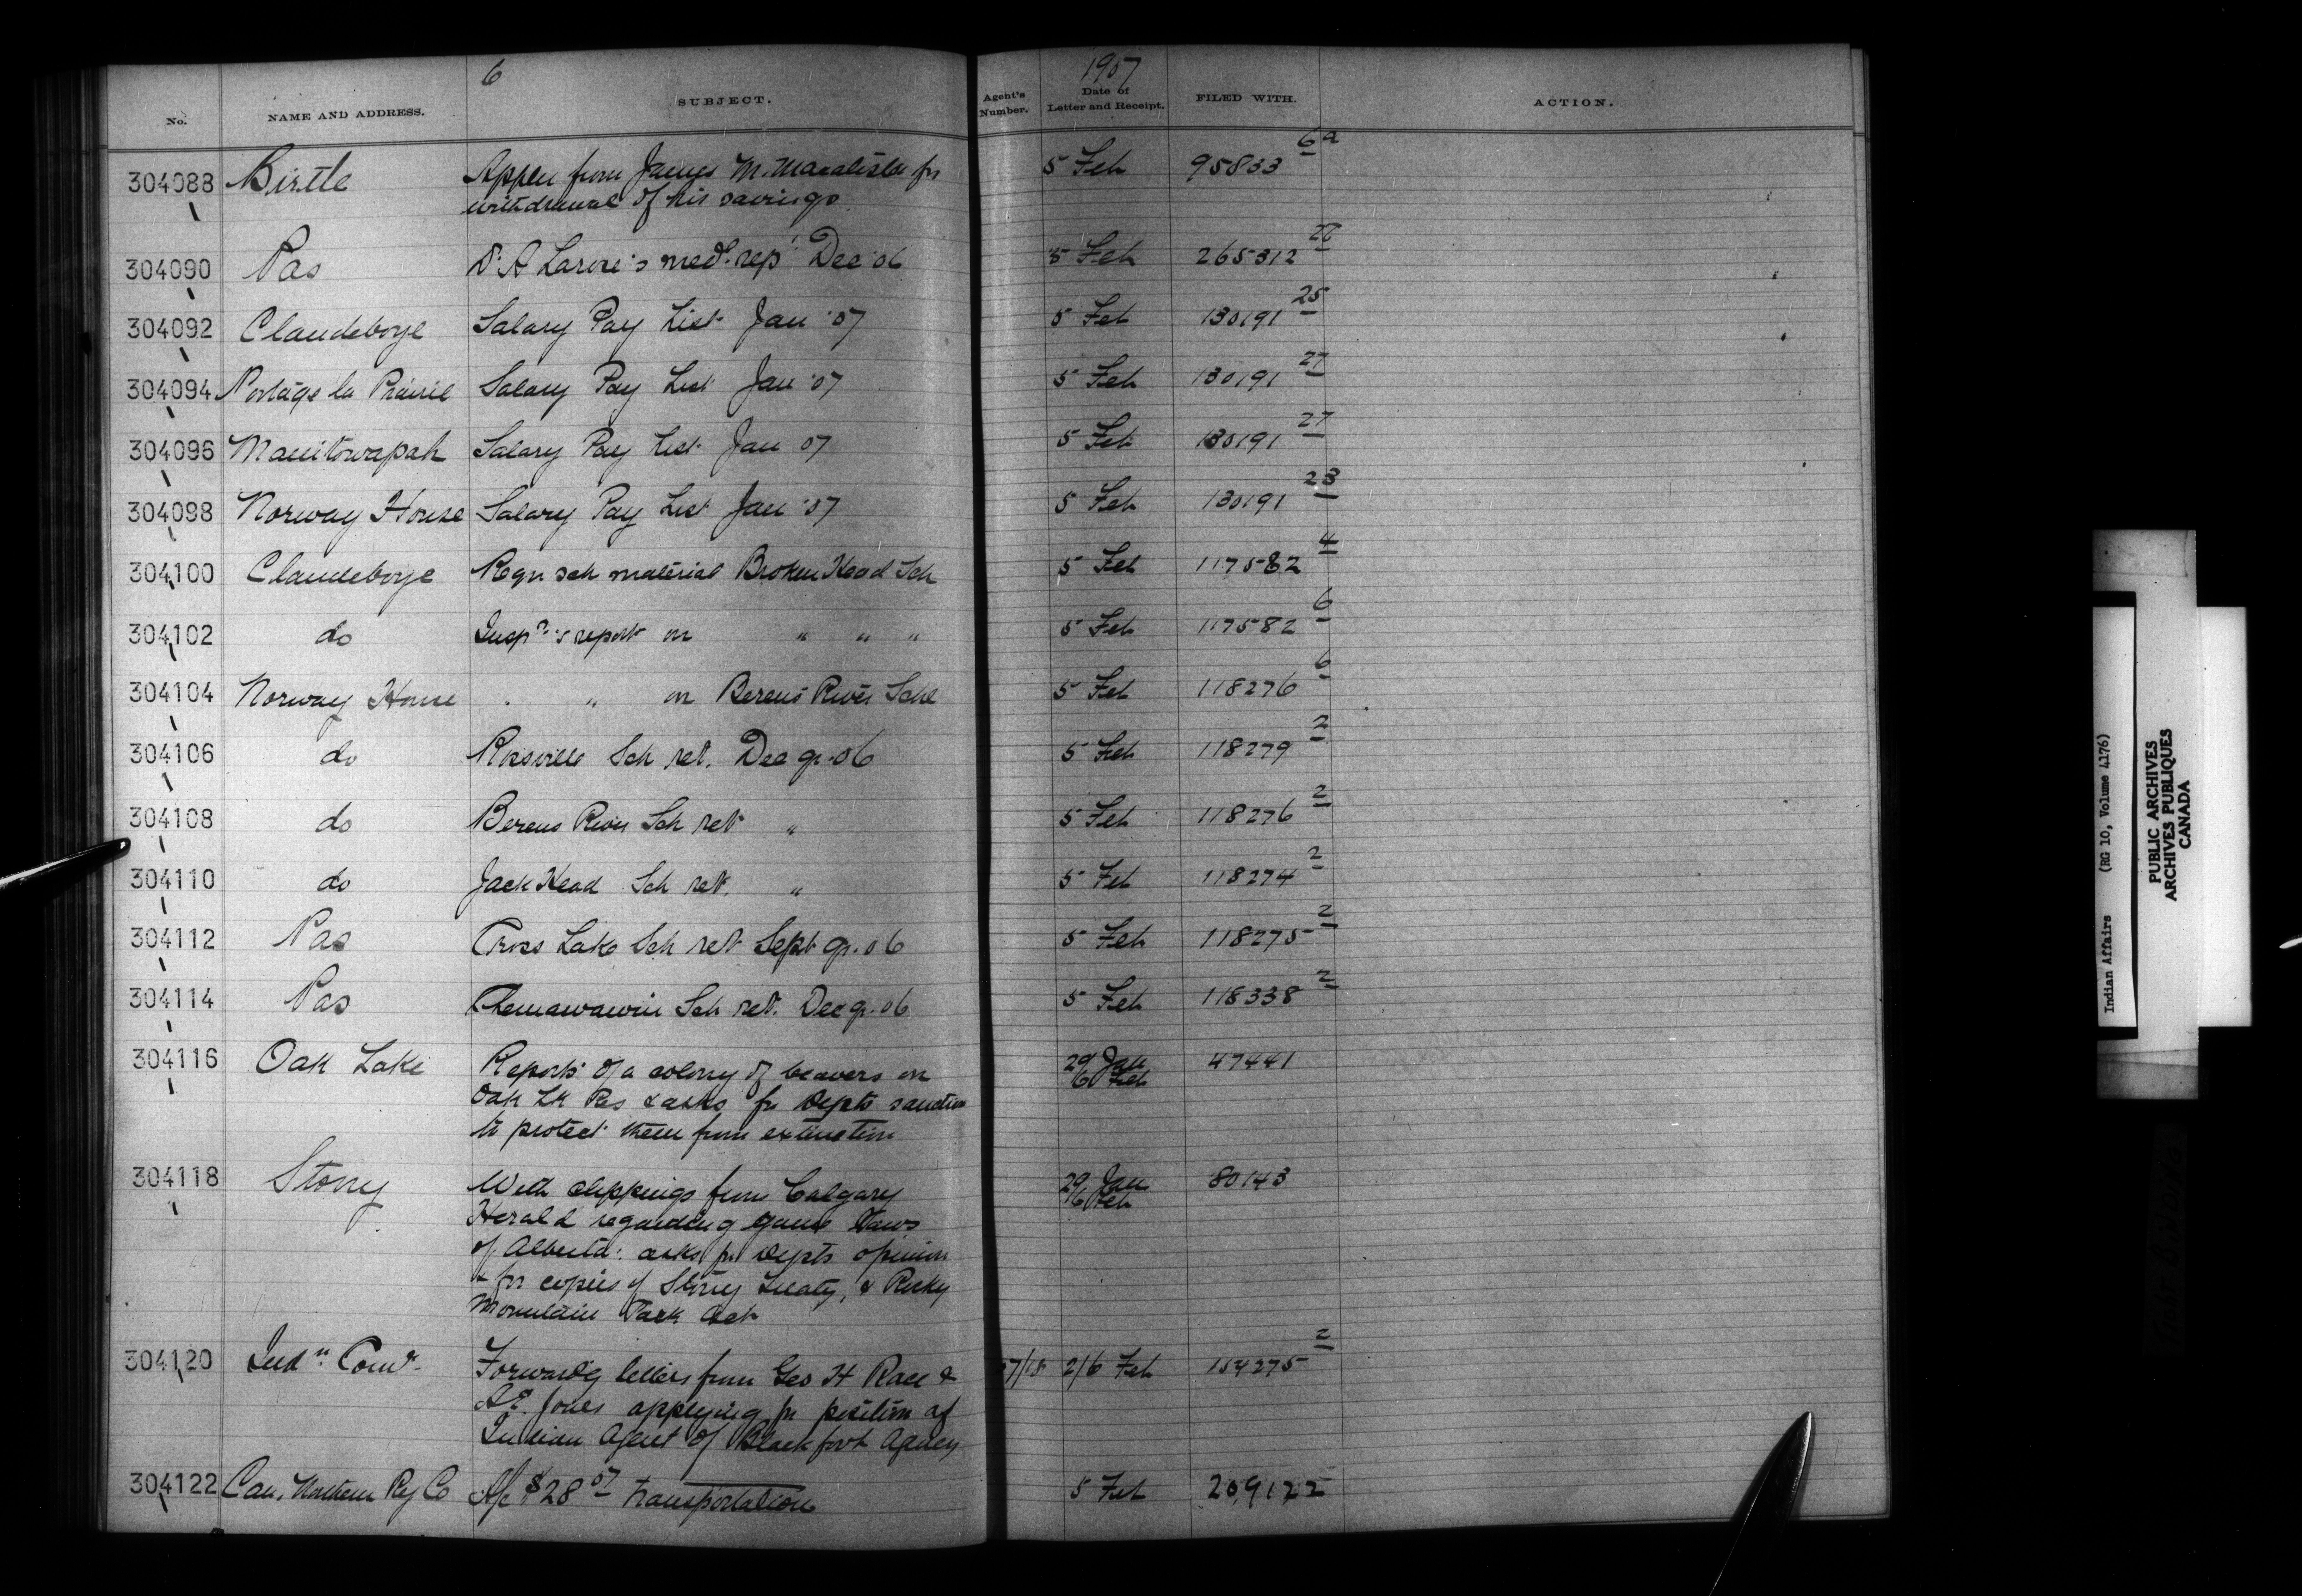 6
1907
No.
NAME AND ADDRESS.
SUBJECT.
Agent's
Number.
Date of
Letter and Receipt.
FILED WITH.
ACTION.
304088 Birtle Appln from James M. Macalister for 5 Feb 95833 6a
withdrawal of his savings
304090 Pas Dr A Larose's med. rept Dec '06 5 Feb 265312 28
304092 Claudeboye Salary Pay List Jan '07 5 Feb 130191 25
304094 Portage la Prairie Salary Pay List Jan '07 5 Feb 130191 27
304096 Manitowapah Salary Pay List Jan 07 5 Feb 130191 27
304098 Norway House Salary Pay List Jan '07 5 Feb 130191 23
304100 Claudeboye Reqn sch material Broken Head Sch 5 Feb 117582 4
304102 do Inspr's report on " " " 5 Feb 117582 6
304104 Norway House " " on Berens River Schl 5 Feb 118276 6
304106 do Rossville Sch ret. Dec qr. 06 5 Feb 118279 2
304108 do Berens River Sch ret " 5 Feb 118276 2
304110 do Jack Head Sch ret. " 5 Feb 118274 2
304112 Pas Cross Lake Sch ret Sept qr. 06 5 Feb 118275 2
304114 Pas Chemawawin Sch ret. Dec qr. 06 5 Feb 118338 2
304116 Oak Lake Reports of a colony of beavers on 29 Jan 47441
6 Feb
Oak Lk Res & asks for Depts sanction
to protect them from extinction
304118 Stony With clippings from Calgary 29 Jan 80143
6 Feb
Herald regarding game laws
of Alberta: asks for Depts opinion
& for copies of Stony Treaty, & Rocky
Mountain Park Act
304120 Indn Comr. Forwardg letters from Geo H Race & 2/6 Feb 154275 2
A.E. Jones applying for position of
Indian Agent of Blackfoot Agency
304122 Can. Northern Ry Co A/c $28 07 transportation 5 Feb 209122
Indian Affairs (RG 10, Volume 4176)
PUBLIC ARCHIVES
ARCHIVES PUBLIQUES
CANADA